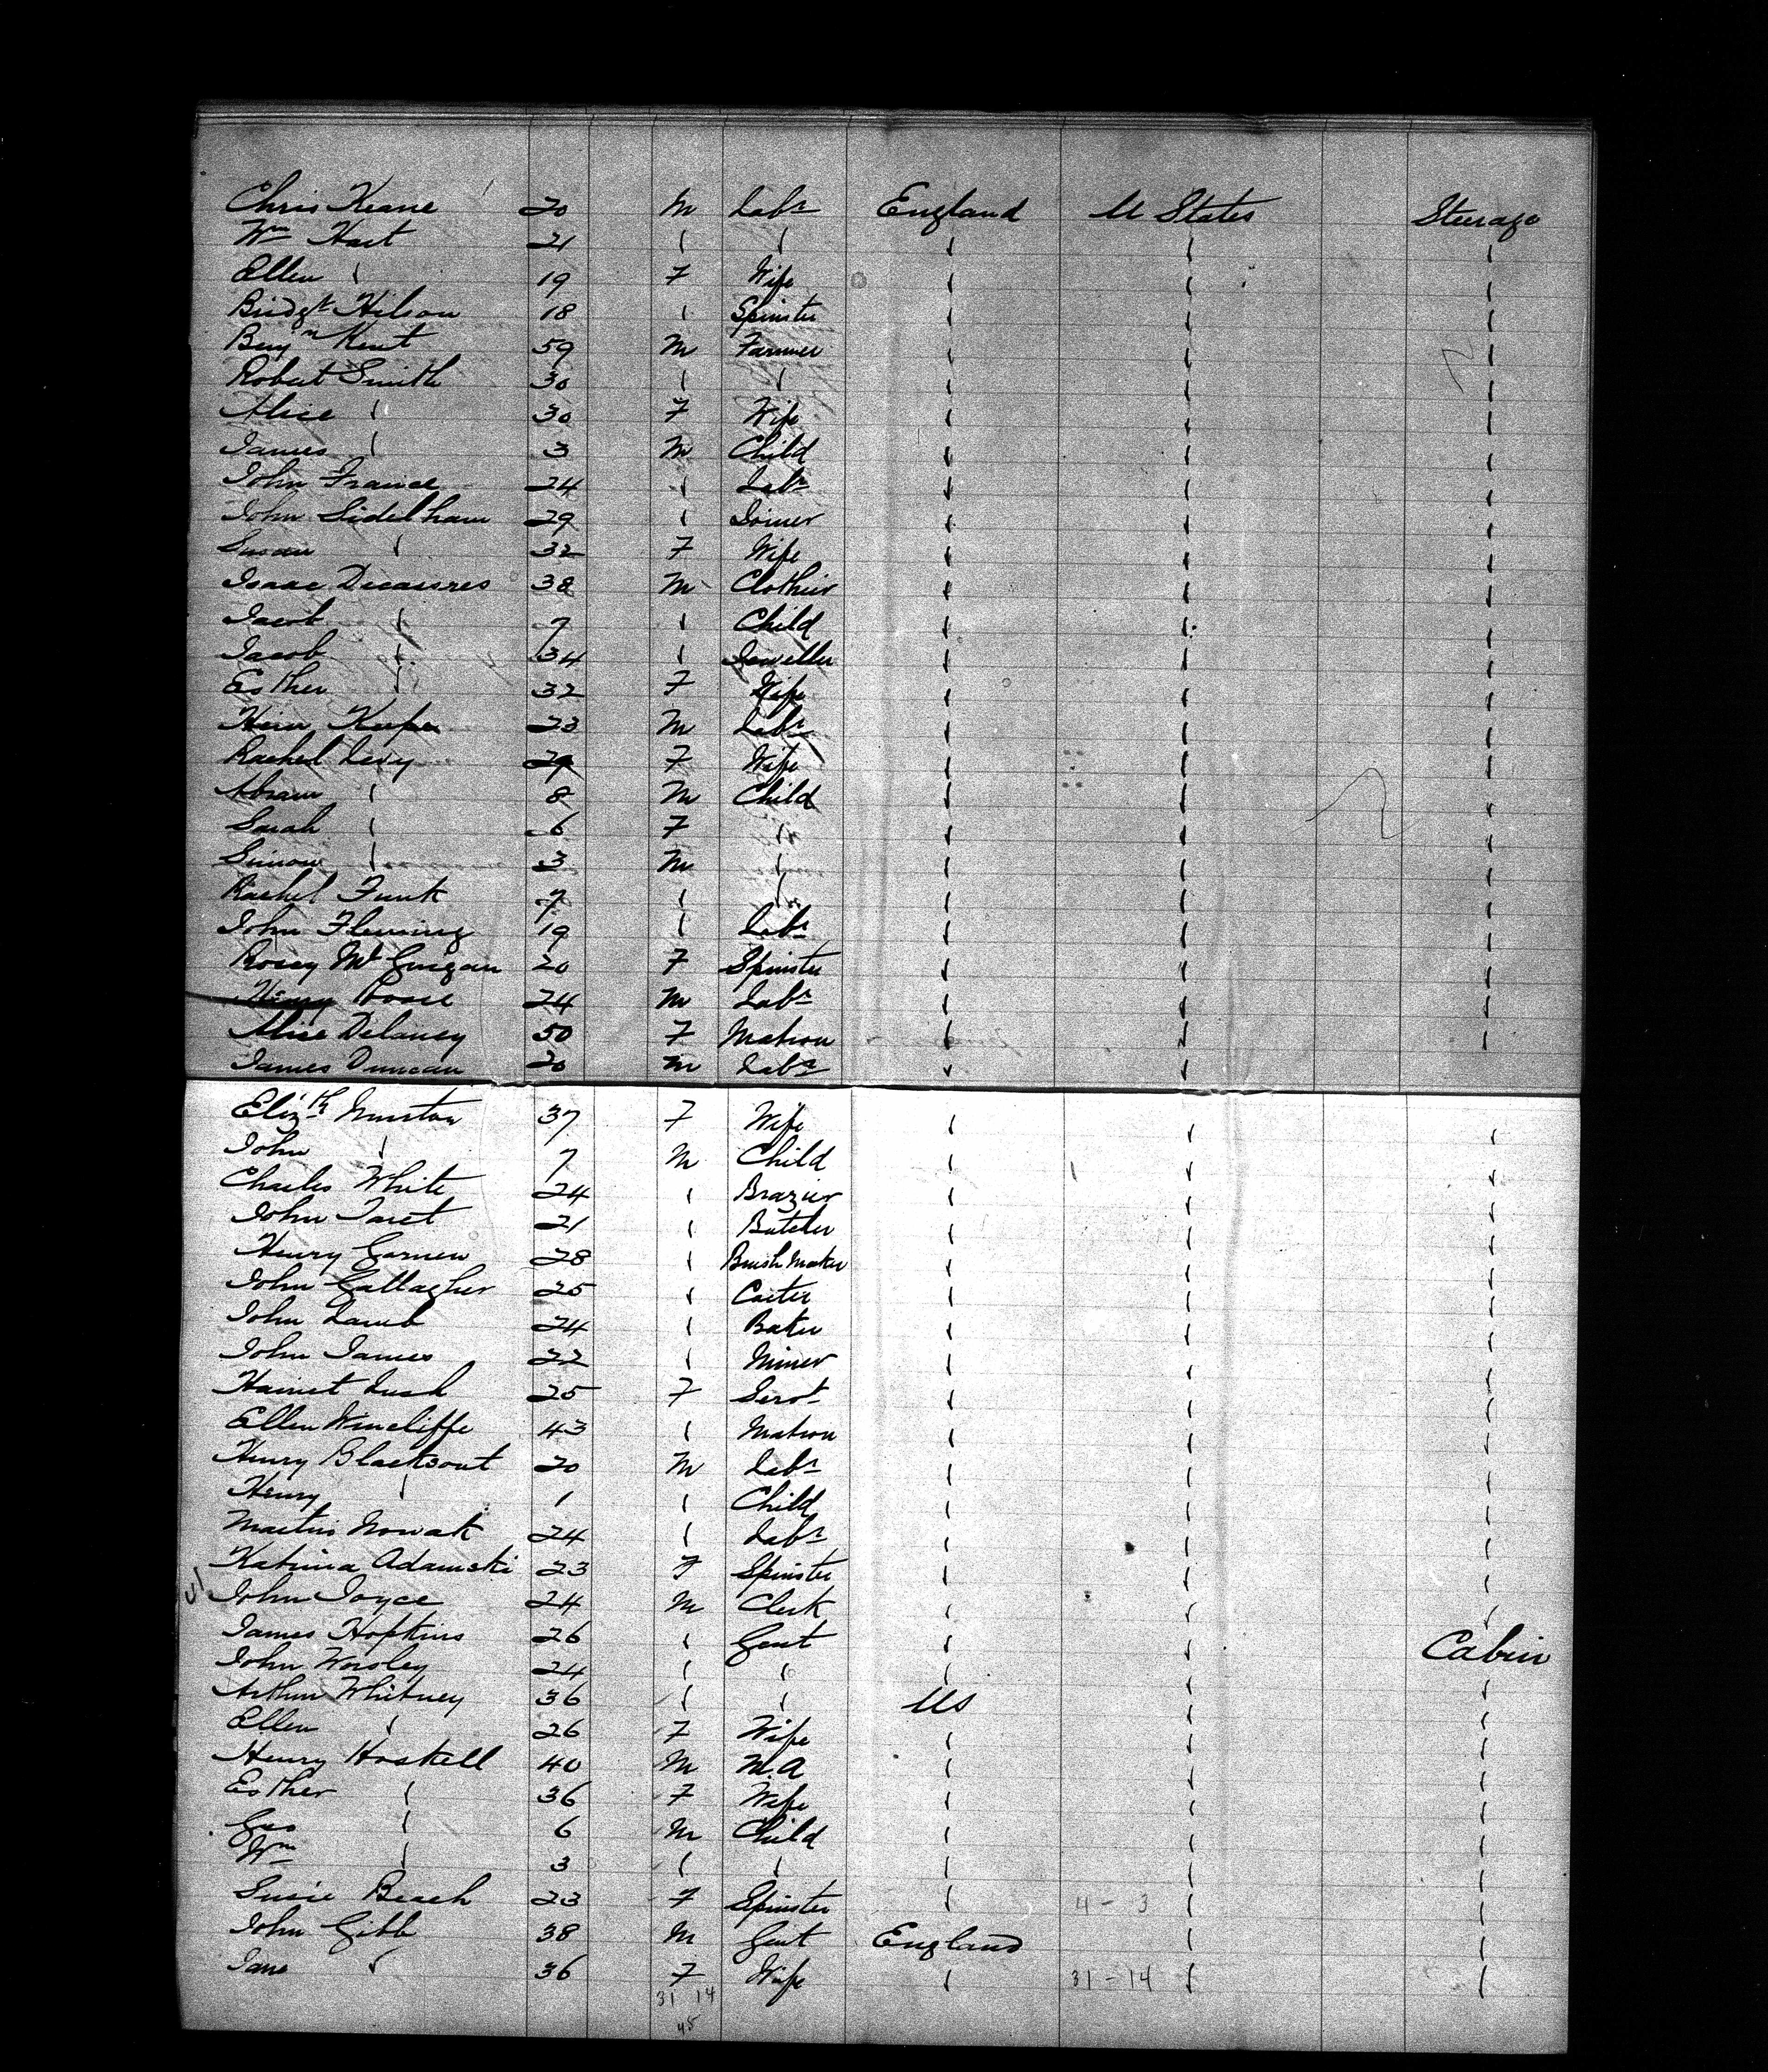 Chris Keane 20 M Labr England U States Steerage
Wm Hart 21 " " " " "
Ellen " 19 F Wife " " "
Bridgt Hilson 18 " Spinster " " "
Benjn Kent 59 M Farmer " " "
Robert Smith 30 " " " " "
Alice " 30 F Wife " " "
James " 3 M Child " " "
John France 24 " Labr " " "
John Sidelham 29 " Joiner " " "
Susan " 32 F Wife " " "
Isaac Decassres 38 M Clothier " " "
Jacob " 7 " Child " " "
Jacob " 34 " Jeweller " " "
Esther " 32 F Wife " " "
23 M Labr " " "
Rachel Levy 29 F Wife " " "
Abram " 8 M Child " " "
Sarah " 6 F " " " "
Simon " 3 M " " " "
Rachel Funk 7 " " " " "
John Fleming 19 " Labr " " "
Rosey McGuigan 20 F Spinster " " "
Henry 24 M Labr " " "
Alice Delaney 50 F Matron " " "
James Duncan 20 M Labr " "
Elizth 37 F Wife " " "
John " 7 M Child " " "
Charles White 24 " Brazier " " "
John 21 " Butcher " " "
Henry 28 " Brush Maker " " "
John Gallagher 25 " Carter " " "
John Lamb 24 " Baker " " "
John James 22 " Miner " " "
Harriet Lush 25 F Servt " " "
Ellen Wincliffe 43 " Matron " " "
Henry 20 M Labr " " "
Henry " 1 " Child " " "
Martin Nowak 24 " Labr " " "
Katrina Adamski 23 F Spinster " " "
John Joyce 24 M Clerk " " "
James Hopkins 26 " Gent " " Cabin
John Worsley 24 " " " " "
Arthur Whitney 36 " " US " "
Ellen " 26 F Wife " " "
Henry Haskell 40 M M.A " " "
Esther " 36 F Wife " " "
Geo " 6 M Child " " "
Wm " 3 " " " " "
Susie Beach 23 F Spinster " 4 - 3 " "
John Gibb 38 M Gent England " "
Jane " 36 F Wife " 31 - 14 " "
31 14
45